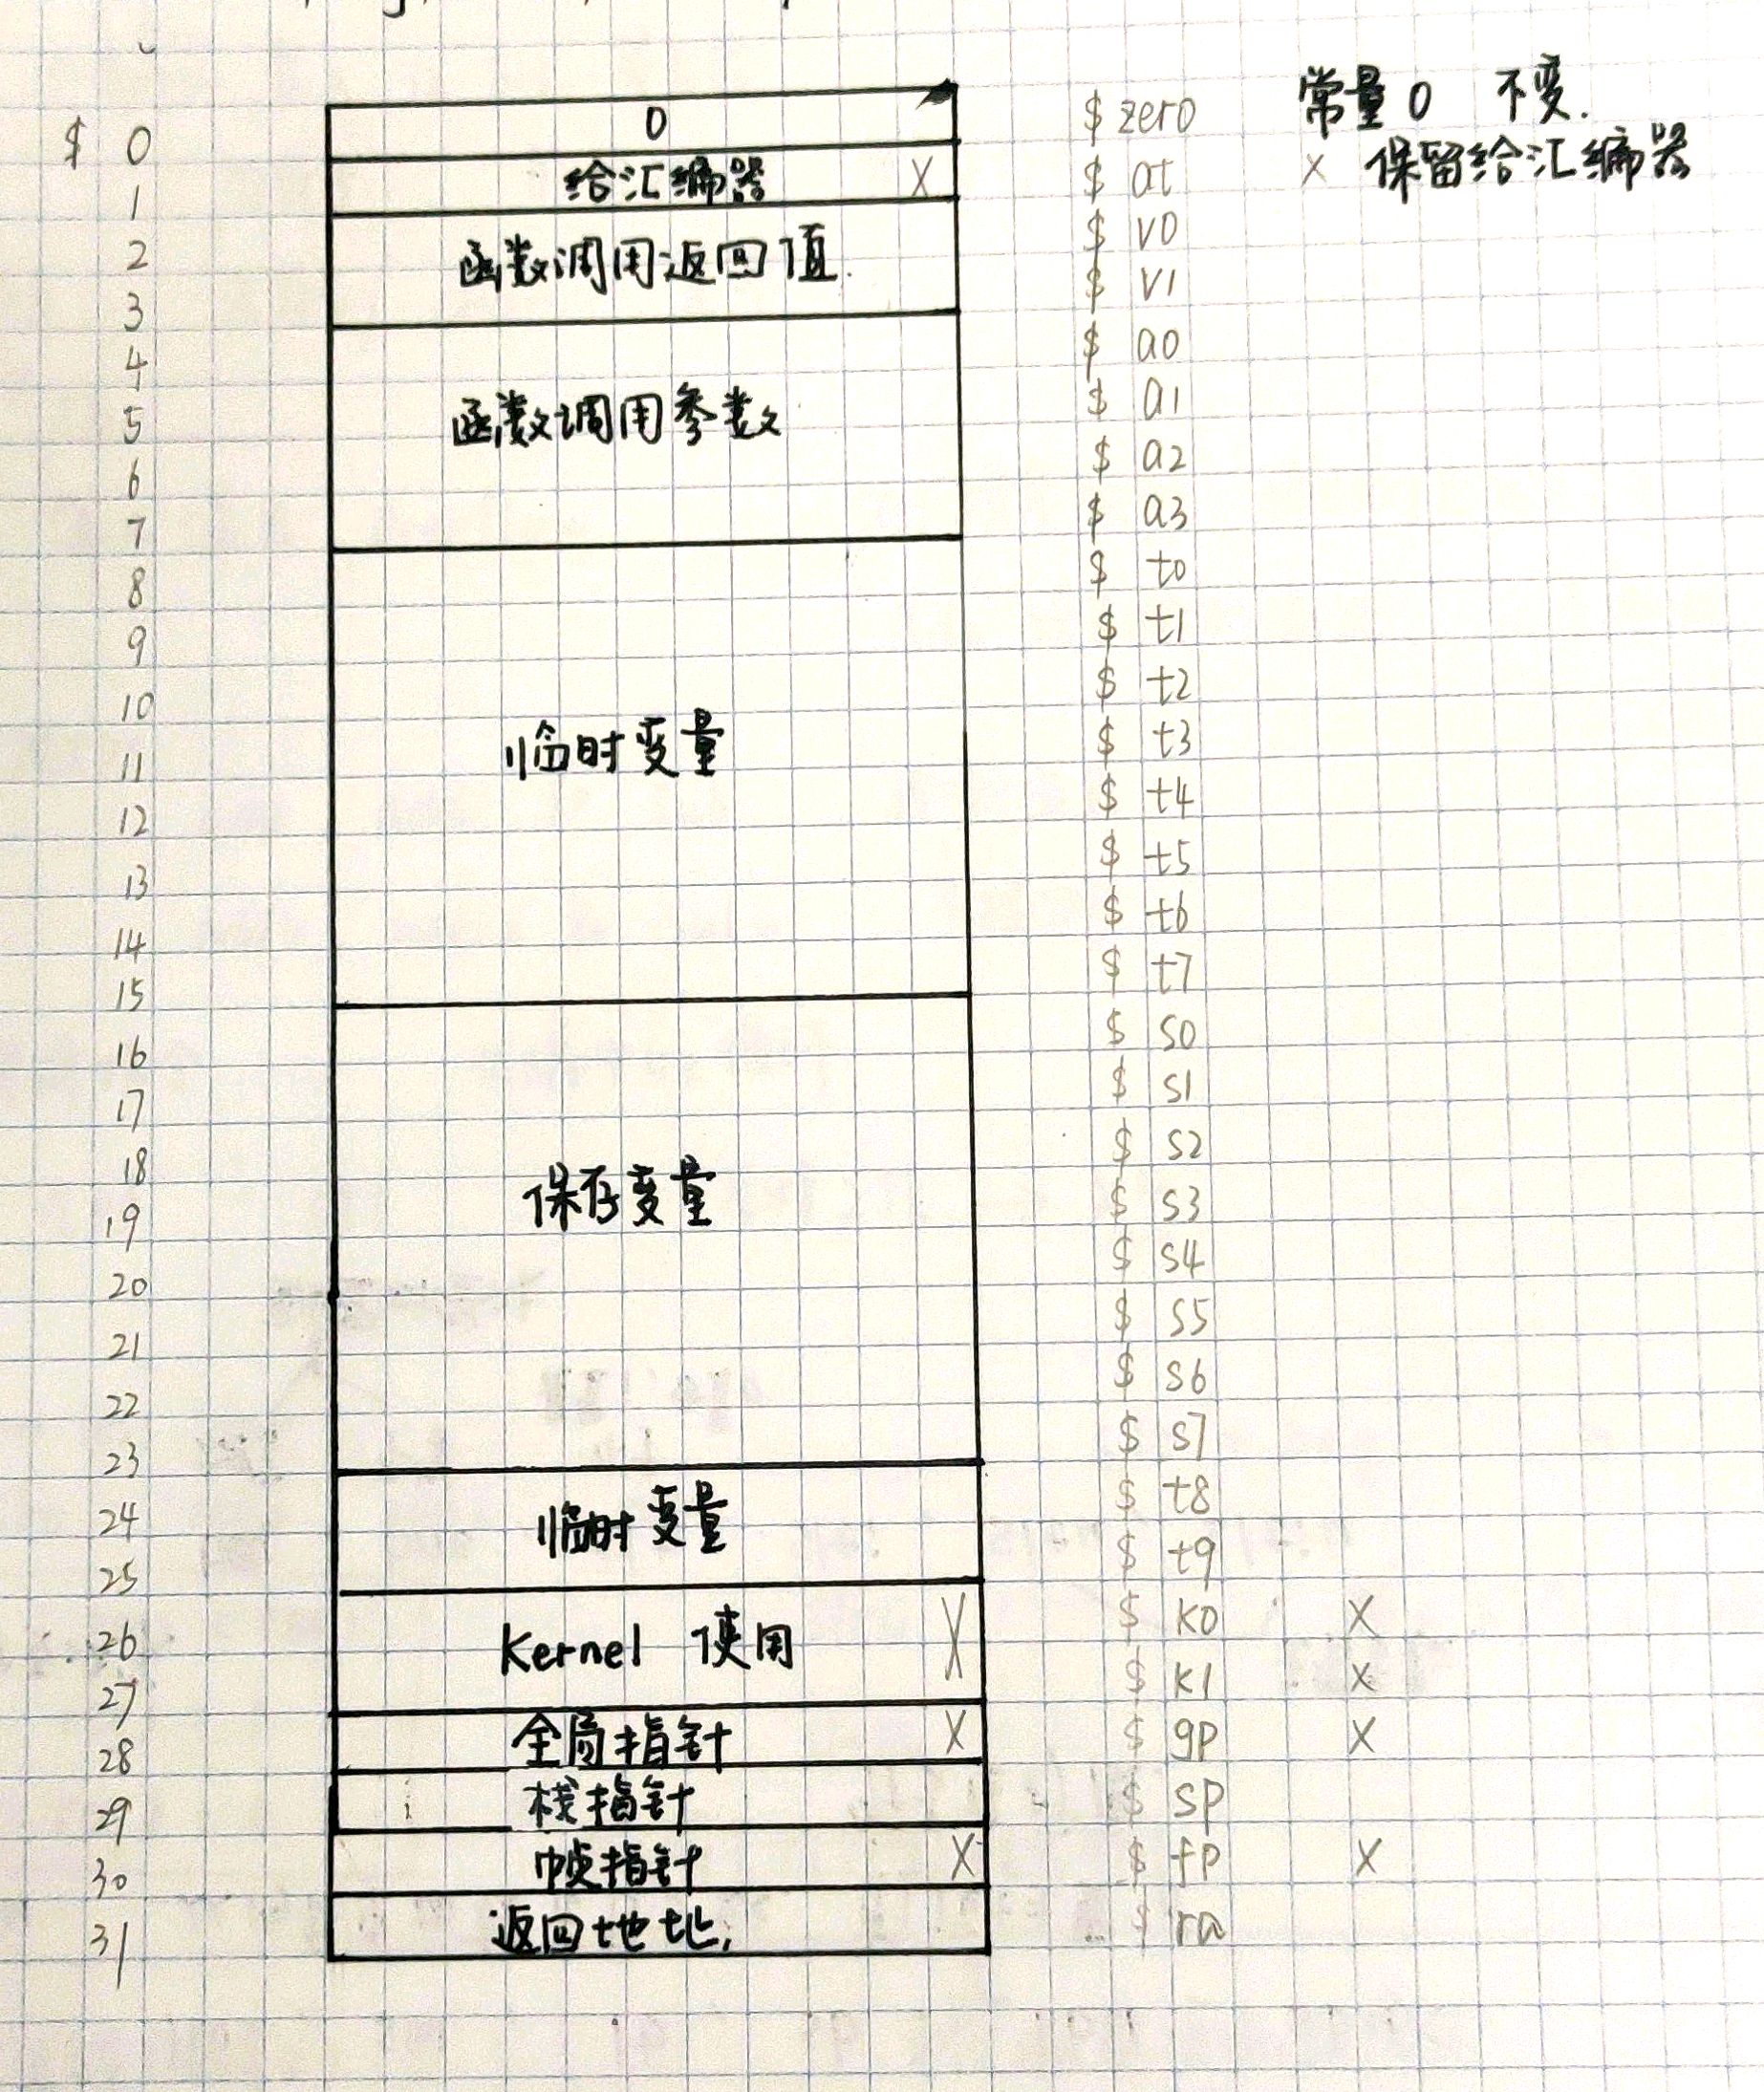 $ 0 0 $ zero 常量0 不变.
1 给汇编器 X $ at X 保留给汇编器
2 函数调用返回值. $ v0
3 $ v1
4 $ a0
5 函数调用参数 $ a1
6 $ a2
7 $ a3
8 $ t0
9 $ t1
10 $ t2
11 临时变量 $ t3
12 $ t4
13 $ t5
14 $ t6
15 $ t7
16 $ s0
17 $ s1
18 $ s2
19 保存变量 $ s3
20 $ s4
21 $ s5
22 $ s6
23 $ s7
24 临时变量 $ t8
25 $ t9
26 Kernel 使用 X $ k0 X
27 $ k1 X
28 全局指针 X $ gp X
29 栈指针 $ sp
30 帧指针 X $ fp X
31 返回地址, $ ra